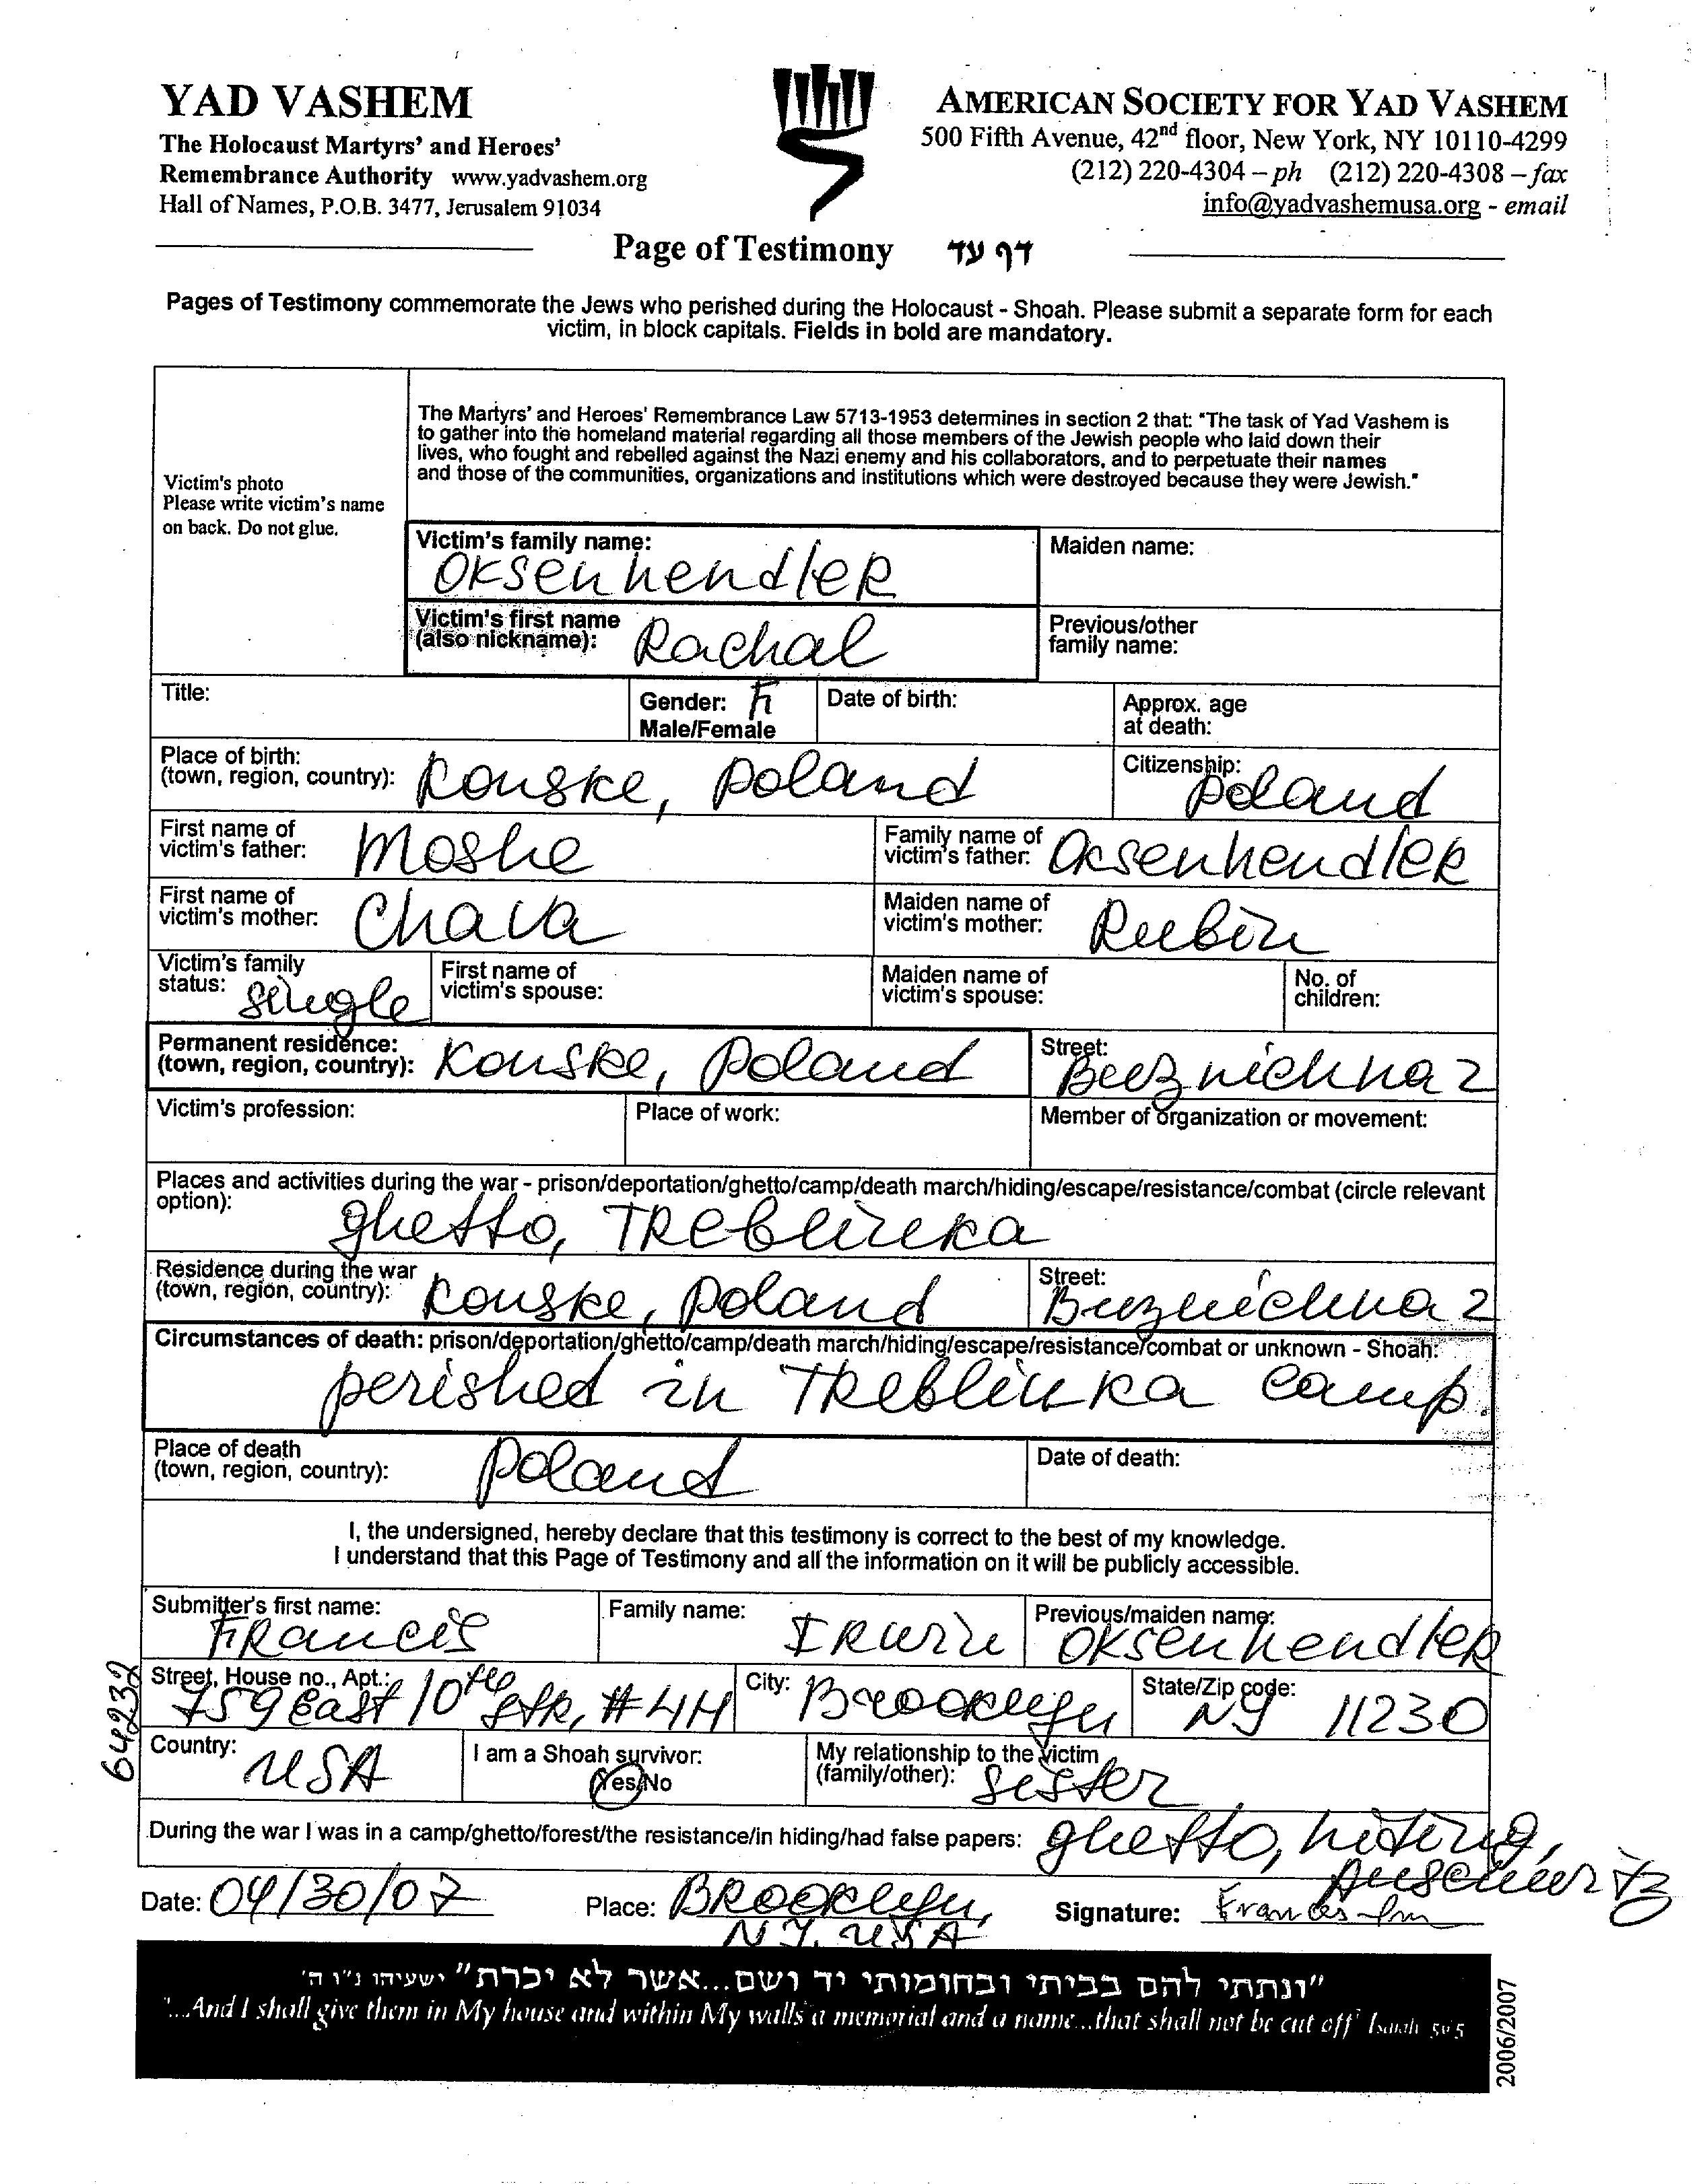 YAD VASHEM
The Holocaust Martyrs' and Heroes'
Remembrance Authority www.yadvashem.org
Hall of Names, P.O.B. 3477, Jerusalem 91034
AMERICAN SOCIETY FOR YAD VASHEM
500 Fifth Avenue, 42nd floor, New York, NY 10110-4299
(212) 220-4304 – ph (212) 220-4308 – fax
info@yadvashemusa.org - email
Page of Testimony דף עד
Pages of Testimony commemorate the Jews who perished during the Holocaust - Shoah. Please submit a separate form for each
victim, in block capitals. Fields in bold are mandatory.
Victim's photo
Please write victim's name
on back. Do not glue.
The Martyrs' and Heroes' Remembrance Law 5713-1953 determines in section 2 that: "The task of Yad Vashem is
to gather into the homeland material regarding all those members of the Jewish people who laid down their
lives, who fought and rebelled against the Nazi enemy and his collaborators, and to perpetuate their names
and those of the communities, organizations and institutions which were destroyed because they were Jewish."
Victim's family name:
Oksenhendler
Maiden name:
Victim's first name
(also nickname): Rachal
Previous/other
family name:
Title:
Gender: F
Male/Female
Date of birth:
Approx. age
at death:
Place of birth:
(town, region, country): Konske, Poland
Citizenship:
Poland
First name of
victim's father: Moshe
Family name of
victim's father: Oksenhendler
First name of
victim's mother: Chava
Maiden name of
victim's mother: Rubin
Victim's family
status: single
First name of
victim's spouse:
Maiden name of
victim's spouse:
No. of
children:
Permanent residence:
(town, region, country): Konske, Poland
Street:
Buznichna 2
Victim's profession:
Place of work:
Member of organization or movement:
Places and activities during the war - prison/deportation/ghetto/camp/death march/hiding/escape/resistance/combat (circle relevant
option):
ghetto, Treblinka
Residence during the war
(town, region, country): Konske, Poland
Street:
Buznichna 2
Circumstances of death: prison/deportation/ghetto/camp/death march/hiding/escape/resistance/combat or unknown - Shoah:
perished in Treblinka camp.
Place of death
(town, region, country): Poland
Date of death:
I, the undersigned, hereby declare that this testimony is correct to the best of my knowledge.
I understand that this Page of Testimony and all the information on it will be publicly accessible.
Submitter's first name:
Francis
Family name: Irwin
Previous/maiden name:
Oksenhendler
Street, House no., Apt.:
759 East 10th Str, #4H
City: Brooklyn
State/Zip code:
NY 11230
Country: USA
I am a Shoah survivor:
Yes/No
My relationship to the victim
(family/other): Sister
During the war I was in a camp/ghetto/forest/the resistance/in hiding/had false papers: ghetto, hiding,
Auschwitz
Date: 04/30/07
Place: Brooklyn,
NY. USA
Signature: Frances
64232
"ונתתי להם בביתי ובחומותי יד ושם...אשר לא יכרת" ישעיהו נ"ו ה'
"...And I shall give them in My house and within My walls a memorial and a name...that shall not be cut off" Isaiah 56:5
2006/2007